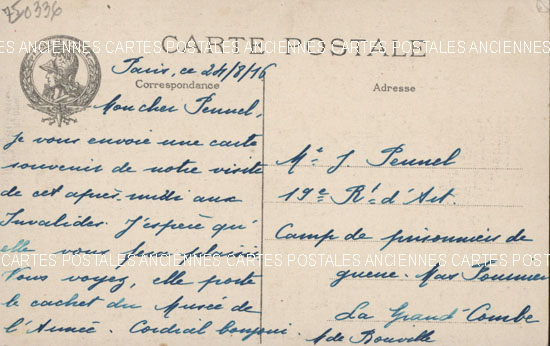 750336
CARTE POSTALE
POSTALES ANCIENNES CARTES POSTALES ANCIENNES CARTES POSTALES ANCIENNES
Paris, ce 24/8/16
Correspondance
Mon cher Pennel,
je vous envoie une carte
souvenir de notre visite
de cet après-midi aux
Invalides. J'espère qu'
elle vous fera plaisir
Vous voyez, elle porte
le cachet du Musée de
l'Armée. Cordial bonjour.
Adresse
Mr J Pennel
19e Rt d'Art.
Camp de prisonniers de
guerre. Mas
La Grand-Combe
POSTALES ANCIENNES CARTES POSTALES ANCIENNES CARTES POSTALES ANCIENNES